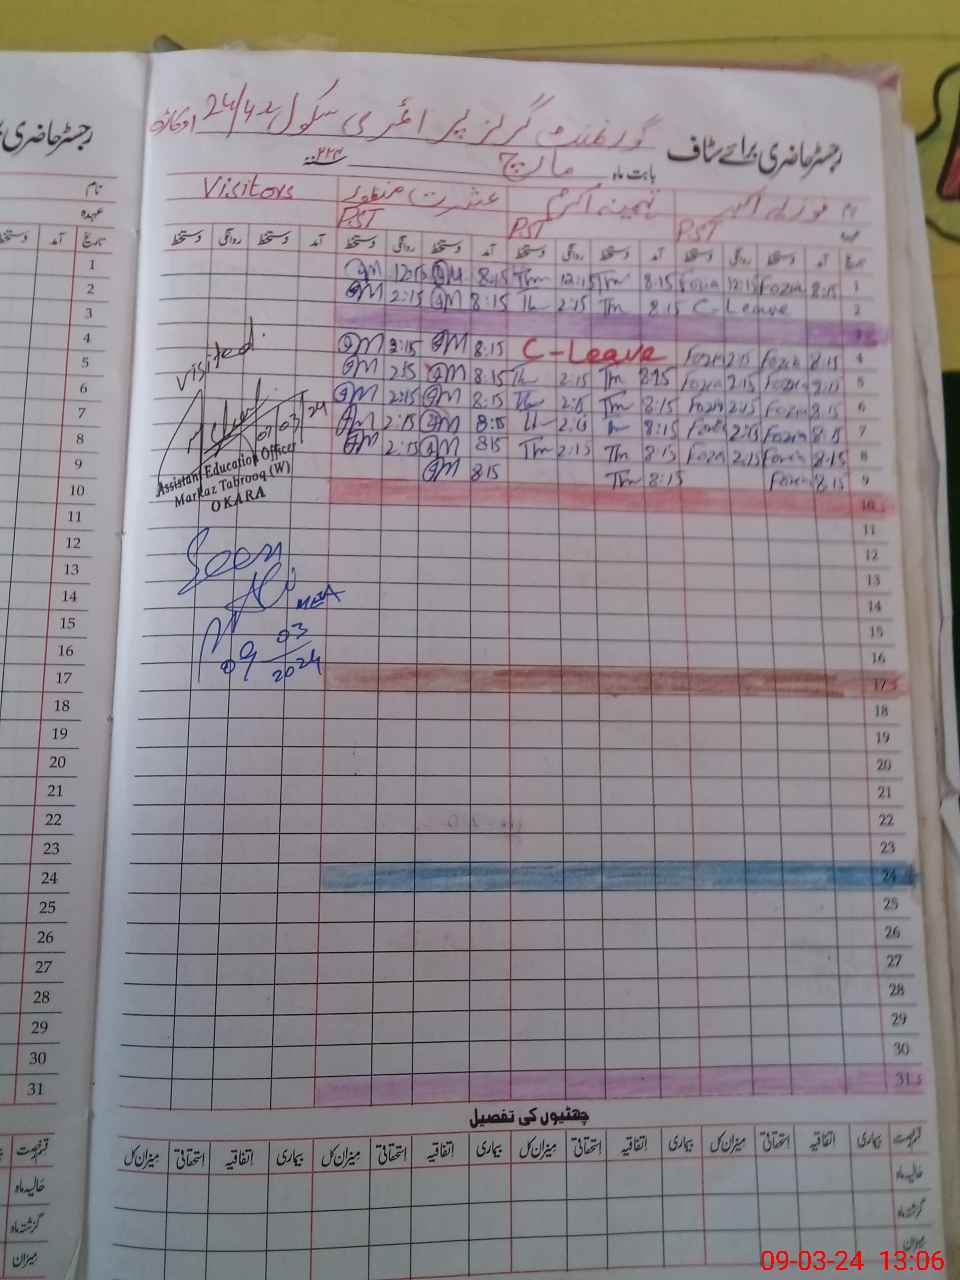 رجسٹر حاضری برائے سٹاف
گورنمنٹ گرلز پرائمری سکول 24/4 اوکاڑہ
بابت ماہ مارچ ۲۰۲۴
نام فوزیہ تہمینہ اکرم عشرت منظور Visitors
عہدہ PST PST PST
تاریخ آمد دستخط روانگی دستخط آمد دستخط روانگی دستخط آمد دستخط روانگی دستخط آمد دستخط روانگی دستخط
1 8:15 Fozia 12:15 Fozia 8:15 Tm 12:15 Tm 8:15 12:15 1
2 C-Leave 8:15 Tm 2:15 8:15 2:15 2
3 3
4 8:15 Fozia 2:15 Fozia C-Leave 8:15 2:15 4
5 8:15 Fozia 2:15 Fozia 8:15 Tm 2:15 8:15 2:15 5
6 8:15 Fozia 2:15 Fozia 8:15 Tm 2:15 8:15 2:15 6
7 8:15 Fozia 2:15 8:15 2:15 8:15 2:15 7
8 8:15 Fozia 2:15 Fozia 8:15 Tm 2:15 Tm 8:15 2:15 8
9 8:15 Fozia 8:15 Tm 8:15 9
10 10
11 11
12 12
13 13
14 14
15 15
16 16
17 17
18 18
19 19
20 20
21 21
22 22
23 23
24 24
25 25
26 26
27 27
28 28
29 29
30 30
31 31
Visited.
07/03/24
Assistant Education Officer
Markaz Tabrooq (W)
OKARA
Seen
MEA
09 03
2024
چھٹیوں کی تفصیل
قسم رخصت بیماری اتفاقیہ استحقاقی میزان کل بیماری اتفاقیہ استحقاقی میزان کل بیماری اتفاقیہ استحقاقی میزان کل
حالیہ ماہ
گزشتہ ماہ
میزان
رجسٹر حاضری
نام
عہدہ
تاریخ آمد دستخط
قسم رخصت
حالیہ ماہ
گزشتہ ماہ
میزان
09-03-24 13:06